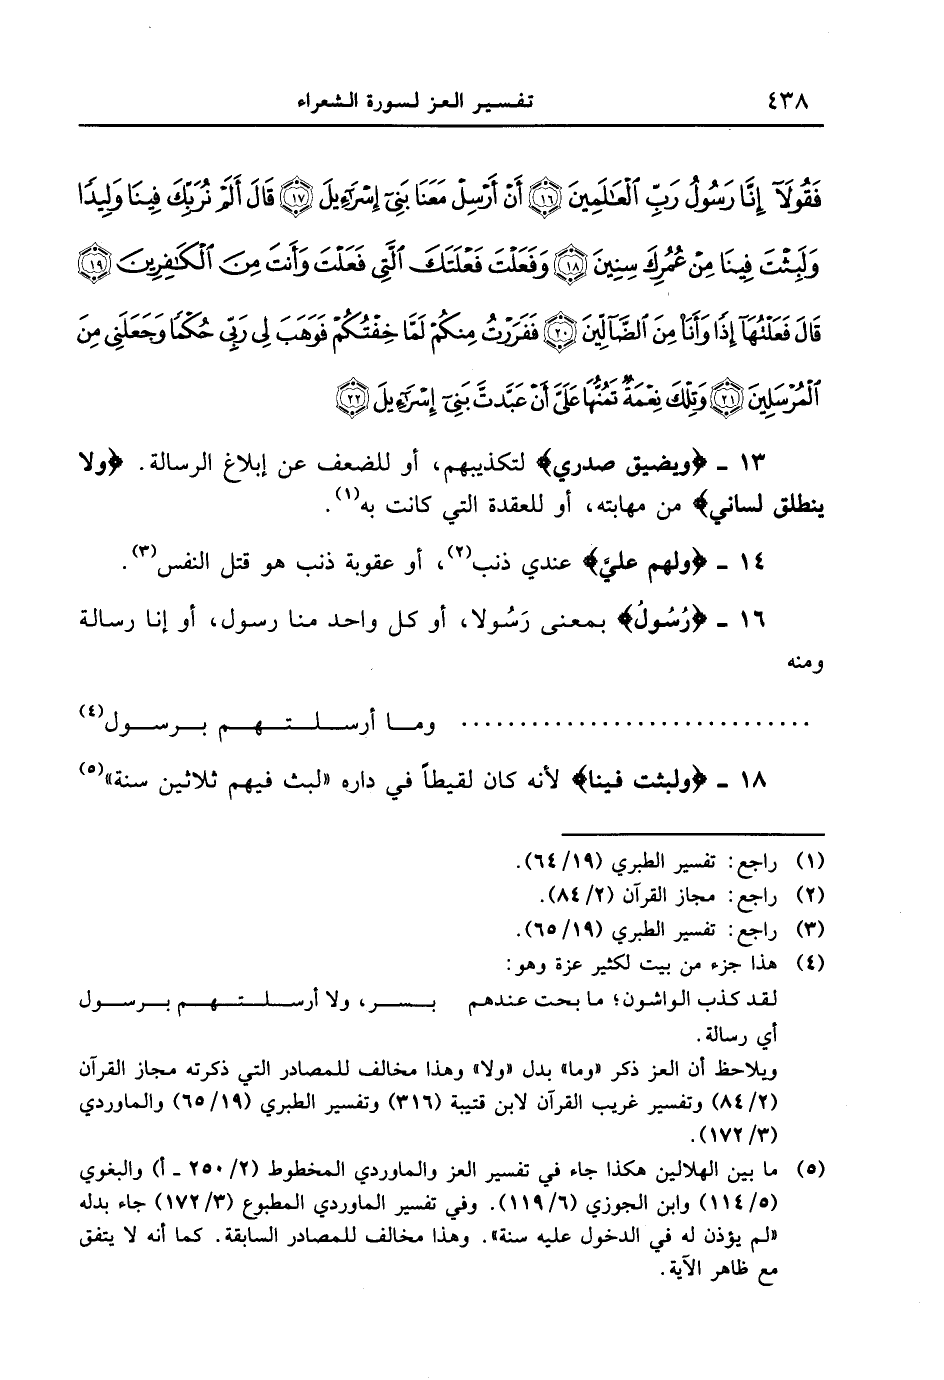 ٤٣٨ تفسير العز لسورة الشعراء
فَقُولَآ إِنَّا رَسُولُ رَبِّ ٱلْعَٰلَمِينَ ١٦ أَنْ أَرْسِلْ مَعَنَا بَنِىٓ إِسْرَٰٓءِيلَ ١٧ قَالَ أَلَمْ نُرَبِّكَ فِينَا وَلِيدًا
وَلَبِثْتَ فِينَا مِنْ عُمُرِكَ سِنِينَ ١٨ وَفَعَلْتَ فَعْلَتَكَ ٱلَّتِى فَعَلْتَ وَأَنتَ مِنَ ٱلْكَٰفِرِينَ ١٩
قَالَ فَعَلْتُهَآ إِذًا وَأَنَا۠ مِنَ ٱلضَّآلِّينَ ٢٠ فَفَرَرْتُ مِنكُمْ لَمَّا خِفْتُكُمْ فَوَهَبَ لِى رَبِّى حُكْمًا وَجَعَلَنِى مِنَ
ٱلْمُرْسَلِينَ ٢١ وَتِلْكَ نِعْمَةٌ تَمُنُّهَا عَلَىَّ أَنْ عَبَّدتَّ بَنِىٓ إِسْرَٰٓءِيلَ ٢٢
١٣ ـ ﴿ويضيق صدري﴾ لتكذيبهم، أو للضعف عن إبلاغ الرسالة. ﴿ولا
ينطلق لساني﴾ من مهابته، أو للعقدة التي كانت به(١).
١٤ ـ ﴿ولهم عليَّ﴾ عندي ذنب(٢)، أو عقوبة ذنب هو قتل النفس(٣).
١٦ ـ ﴿رَسُولُ﴾ بمعنى رَسُولا، أو كل واحد منا رسول، أو إنا رسالة
ومنه
.............................. وما أرسلتهم برسول(٤)
١٨ ـ ﴿ولبثت فينا﴾ لأنه كان لقيطاً في داره «لبث فيهم ثلاثين سنة»(٥)
(١) راجع: تفسير الطبري (١٩/ ٦٤).
(٢) راجع: مجاز القرآن (٢/ ٨٤).
(٣) راجع: تفسير الطبري (١٩/ ٦٥).
(٤) هذا جزء من بيت لكثير عزة وهو:
لقد كذب الواشون؛ ما بحت عندهم بسر، ولا أرسلتهم برسول
أي رسالة.
ويلاحظ أن العز ذكر «وما» بدل «ولا» وهذا مخالف للمصادر التي ذكرته مجاز القرآن
(٢/ ٨٤) وتفسير غريب القرآن لابن قتيبة (٣١٦) وتفسير الطبري (١٩/ ٦٥) والماوردي
(٣/ ١٧٢).
(٥) ما بين الهلالين هكذا جاء في تفسير العز والماوردي المخطوط (٢/ ٢٥٠ ـ أ) والبغوي
(٥/ ١١٤) وابن الجوزي (٦/ ١١٩). وفي تفسير الماوردي المطبوع (٣/ ١٧٢) جاء بدله
«لم يؤذن له في الدخول عليه سنة». وهذا مخالف للمصادر السابقة. كما أنه لا يتفق
مع ظاهر الآية.